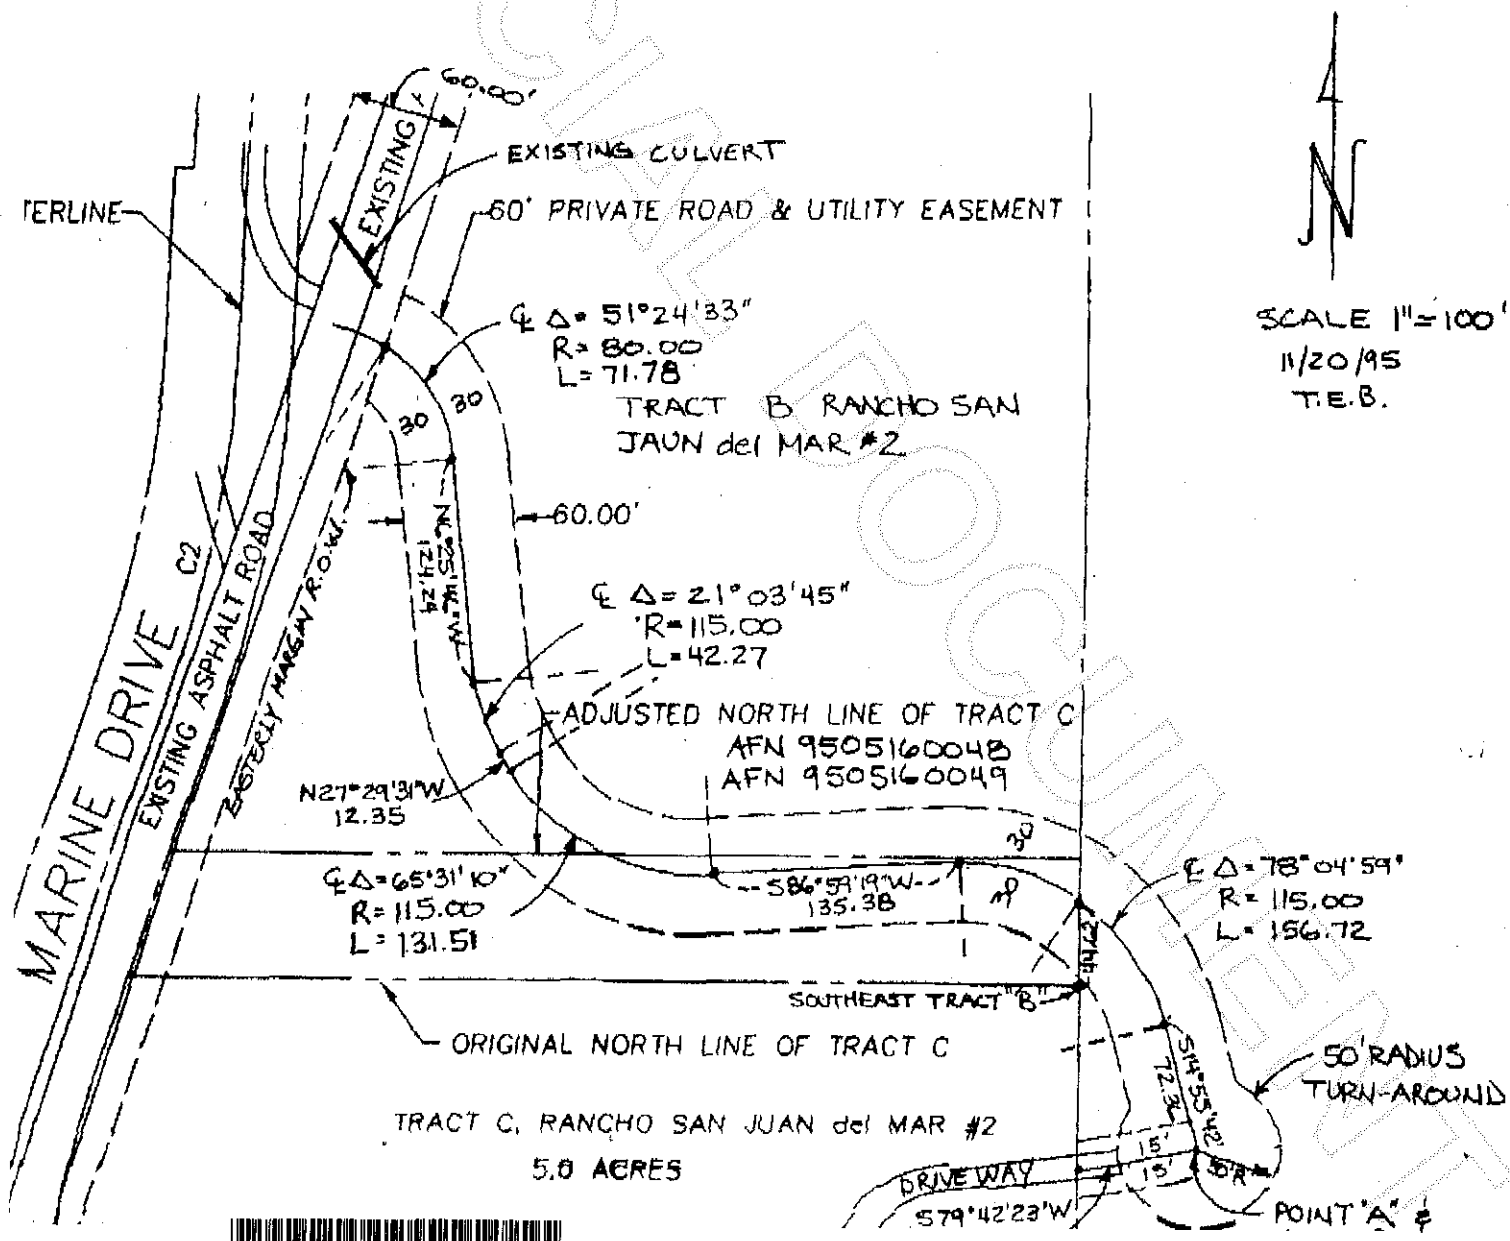 60.00'
EXISTING
EXISTING CULVERT
TERLINE
60' PRIVATE ROAD & UTILITY EASEMENT
N
SCALE 1"=100'
11/20/95
T.E.B.
℄ Δ= 51°24'33"
R= 80.00
L= 71.78
TRACT B RANCHO SAN
JAUN del MAR #2
30
30
60.00'
N6°25'46"W
124.24
C2
MARINE DRIVE
EXISTING ASPHALT ROAD
EASTERLY MARGIN R.O.W.
℄ Δ= 21°03'45"
R=115.00
L=42.27
ADJUSTED NORTH LINE OF TRACT C
AFN 9505160048
AFN 9505160049
N27°29'31"W
12.35
℄ Δ=65°31'10"
R=115.00
L=131.51
S86°59'19"W
135.38
30
℄ Δ=78°04'59"
R=115.00
L=156.72
SOUTHEAST TRACT "B"
ORIGINAL NORTH LINE OF TRACT C
S14°55'42"
50' RADIUS
TURN-AROUND
TRACT C, RANCHO SAN JUAN del MAR #2
5.0 ACRES
15'
15'
50'R
DRIVEWAY
S79°42'23"W
POINT "A" &
CIAL DOCUMENT